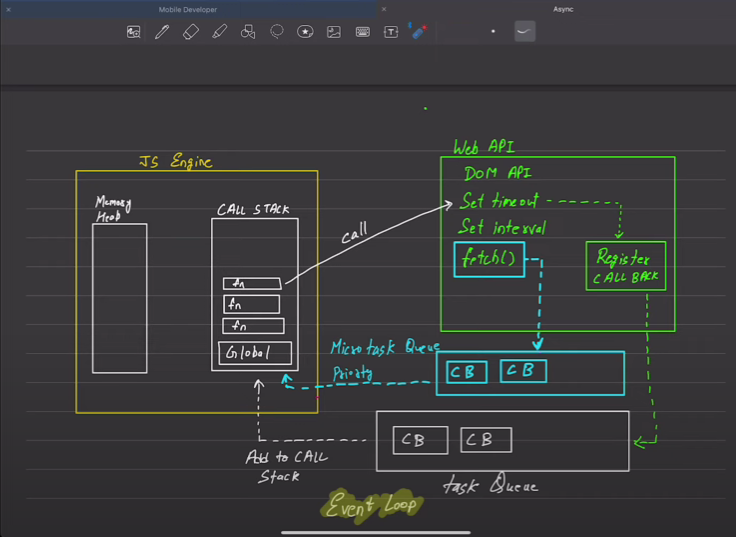 Mobile Developer
Async
JS Engine
Memory
Heap
CALL STACK
fn
fn
fn
Global
call
Web API
DOM API
Set timeout
Set interval
fetch()
Register
CALL BACK
Micro task Queue
Priority
CB
CB
CB
CB
Add to CALL
Stack
task Queue
Event Loop